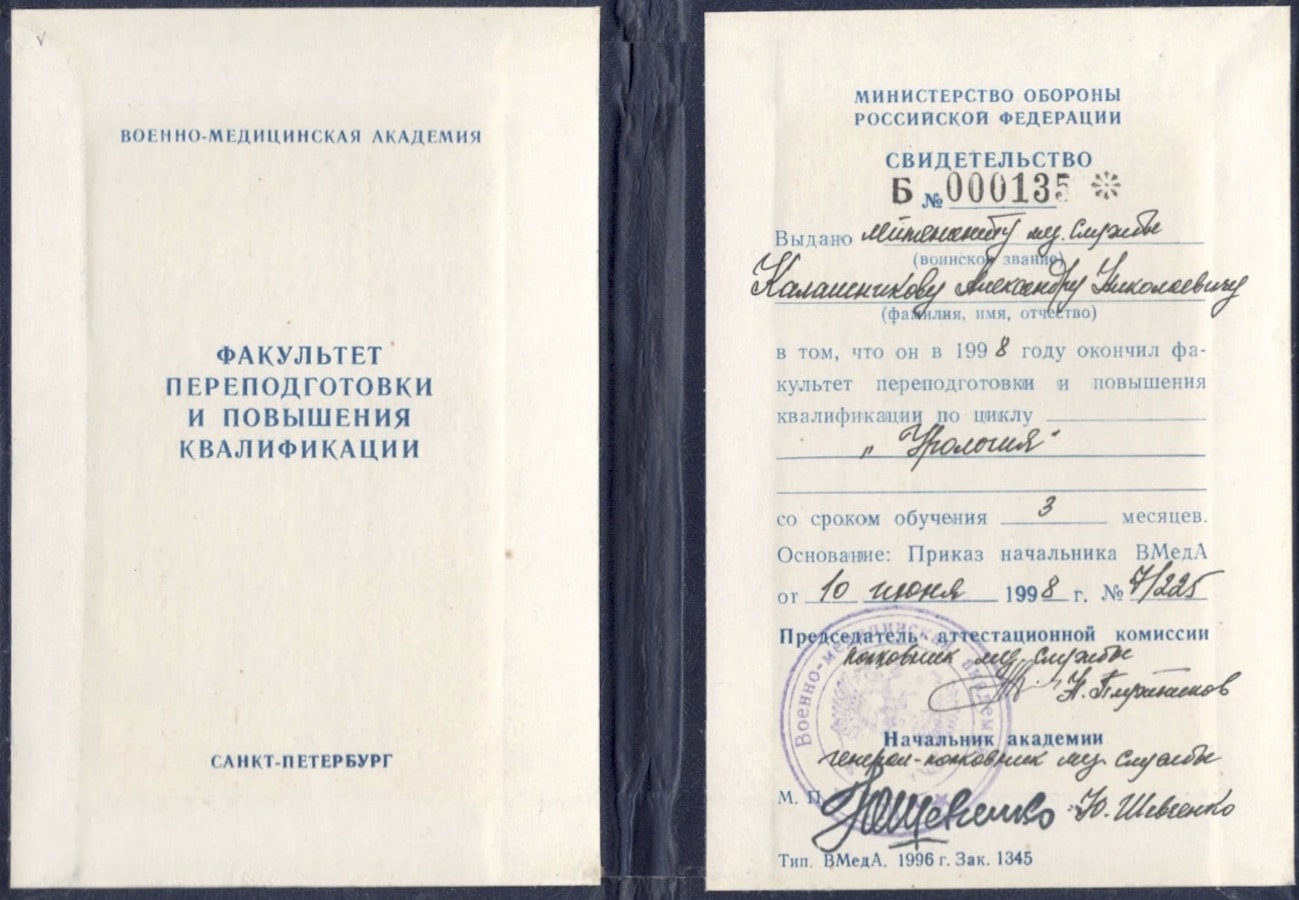 ВОЕННО-МЕДИЦИНСКАЯ АКАДЕМИЯ
ФАКУЛЬТЕТ
ПЕРЕПОДГОТОВКИ
И ПОВЫШЕНИЯ
КВАЛИФИКАЦИИ
САНКТ-ПЕТЕРБУРГ
МИНИСТЕРСТВО ОБОРОНЫ
РОССИЙСКОЙ ФЕДЕРАЦИИ
СВИДЕТЕЛЬСТВО
Б № 000135
Выдано лейтенанту м/с. службы
(воинское звание)
Калашникову Александру Николаевичу
(фамилия, имя, отчество)
в том, что он в 1998 году окончил фа-
культет переподготовки и повышения
квалификации по циклу
„Урология"
со сроком обучения 3 месяцев.
Основание: Приказ начальника ВМедА
от 10 июня 1998 г. № 7/225
Председатель аттестационной комиссии
полковник м/с. службы
Начальник академии
генерал-полковник м/с. службы
М. П. Ю. Шевченко
Тип. ВМедА. 1996 г. Зак. 1345
Военно-медицинская академия